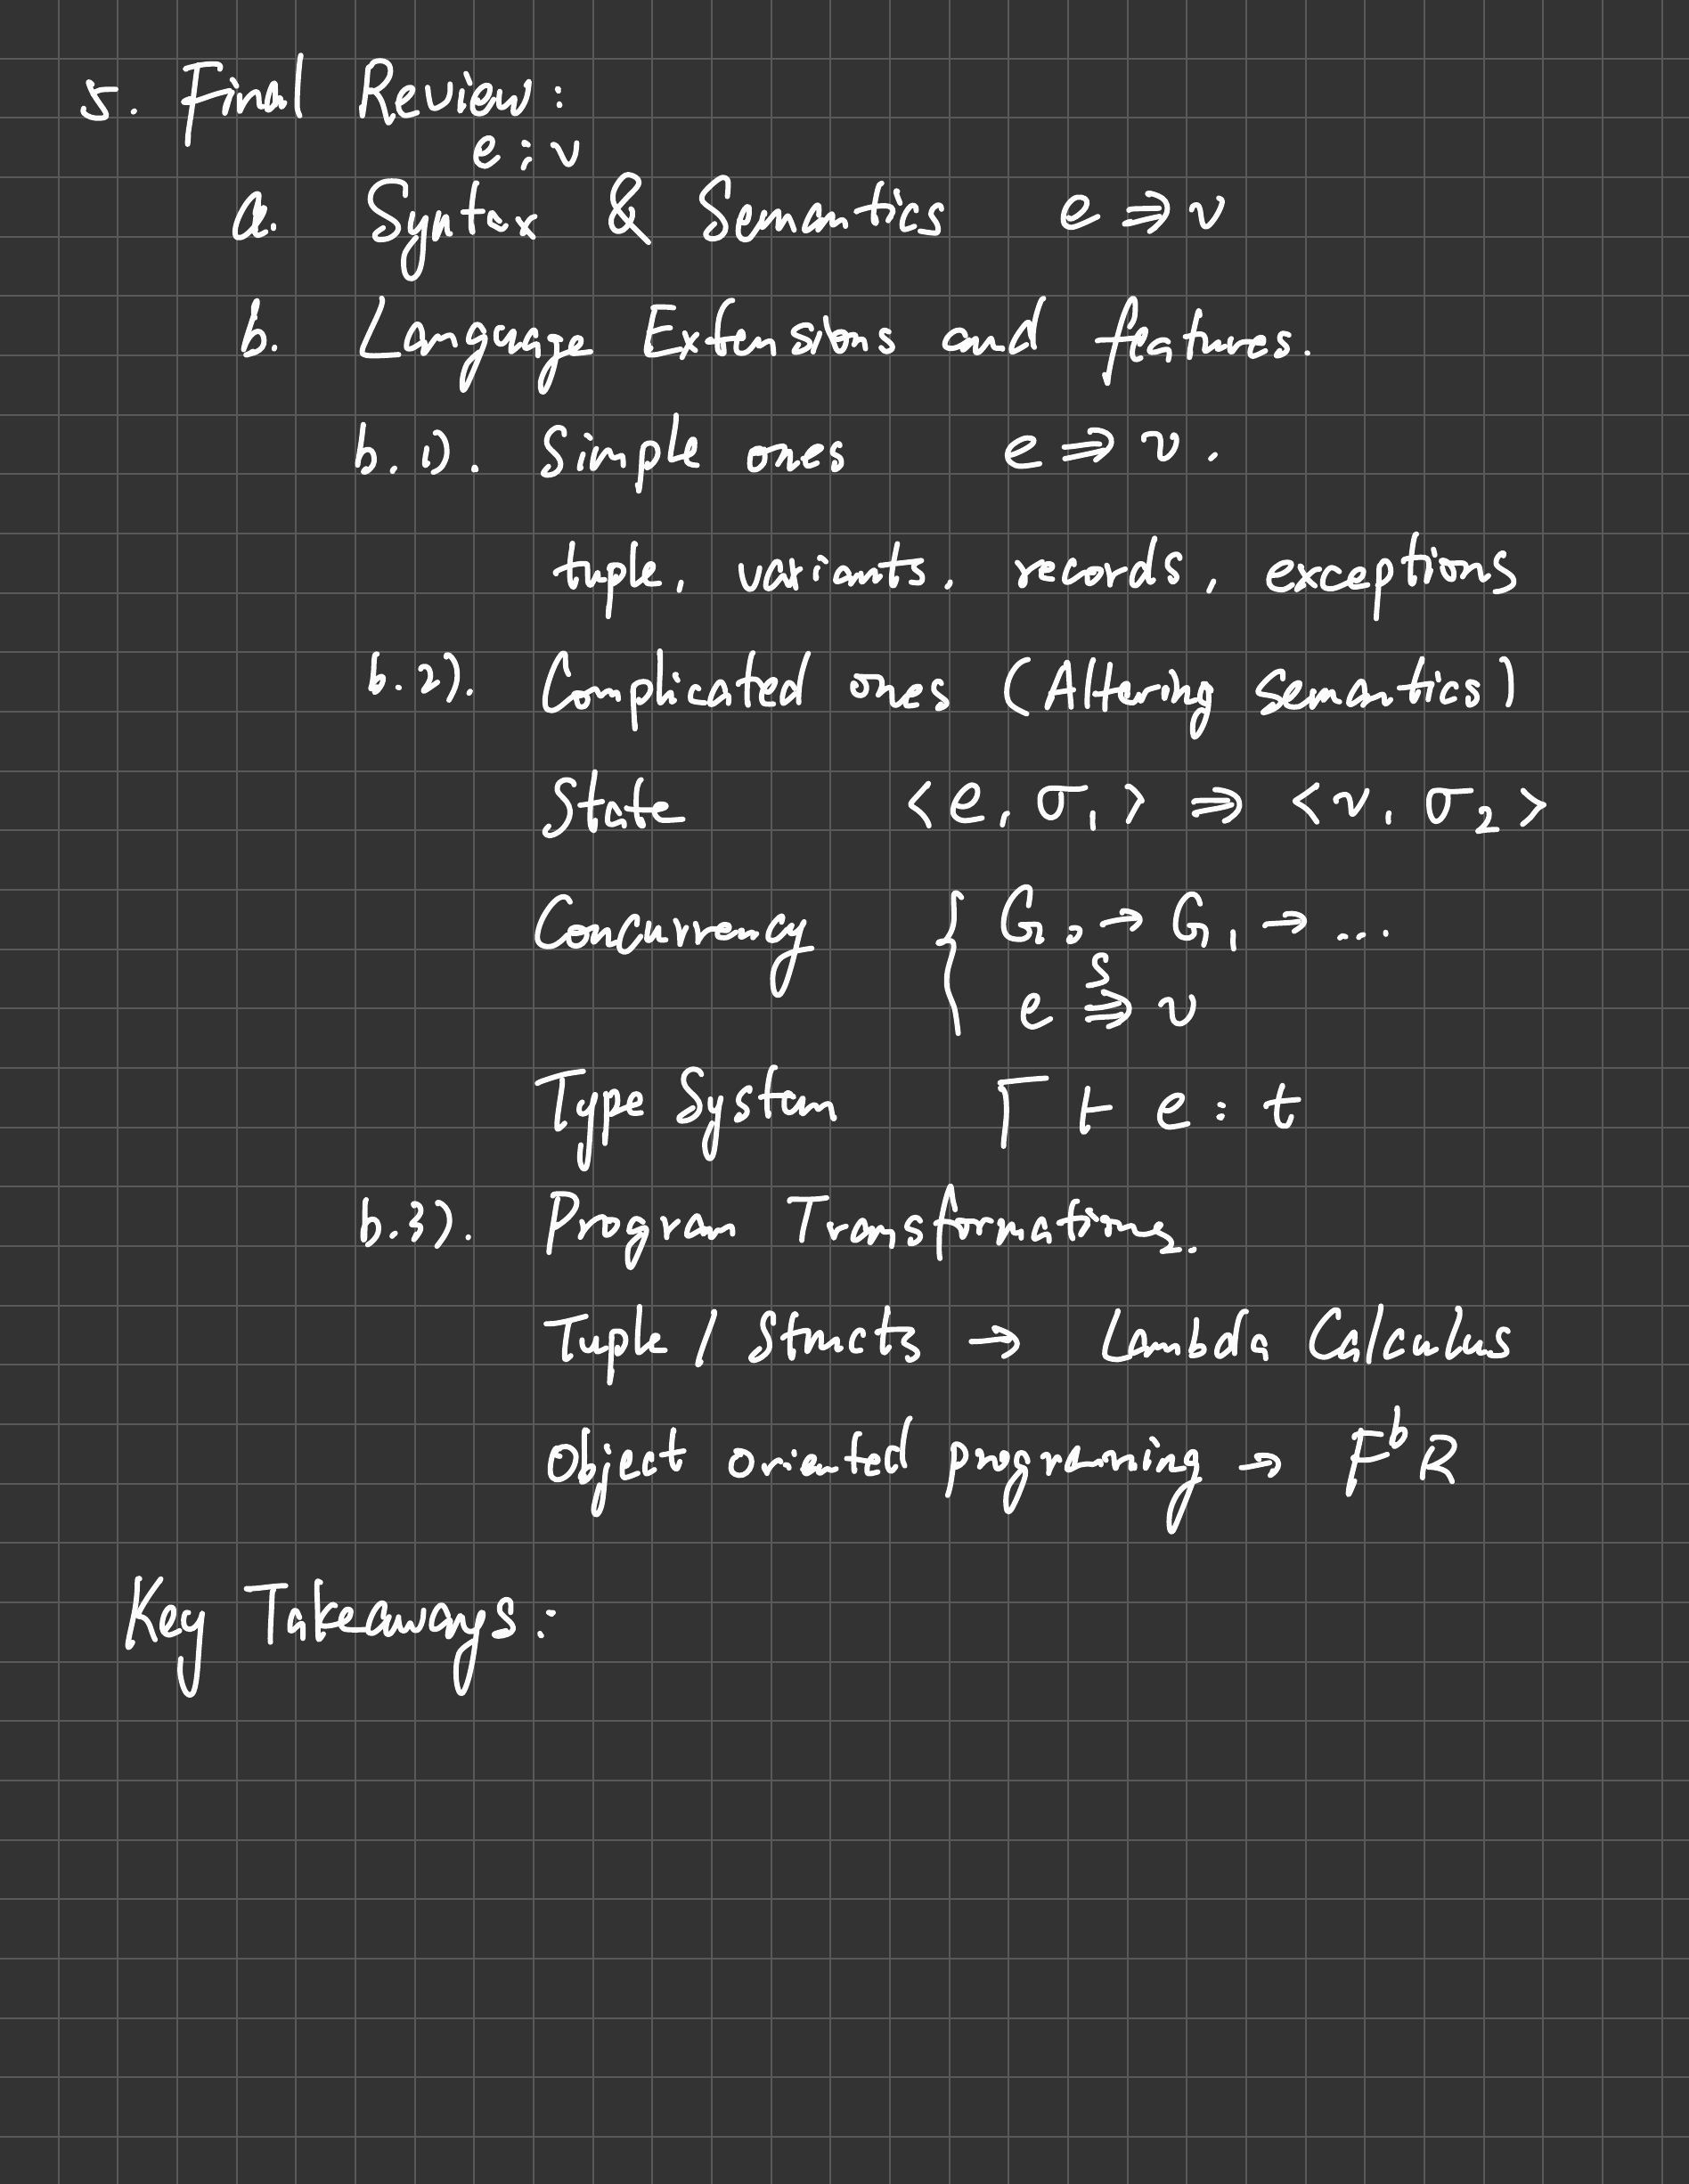 5. Final Review:
e ; v
a. Syntax & Semantics e ⇒ v
b. Language Extensions and features.
b.1). Simple ones e ⇒ v.
tuple, variants, records, exceptions
b.2). Complicated ones (Altering Semantics)
State <e, σ₁> ⇒ <v, σ₂>
Concurrency { G₀ → G₁ → ...
S
e ⇒ v
Type System Γ ⊢ e : t
b.3). Program Transformations.
Tuple / Structs → Lambda Calculus
Object oriented programing → FᵇR
Key Takeaways: